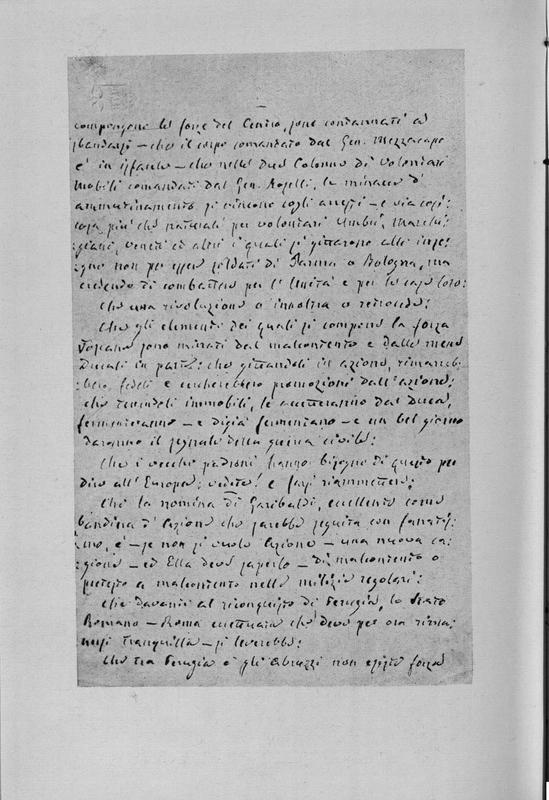 compongono le forze del Centro, sono condannati a
sbandarsi – che il corpo comandato dal Gen. Mezzacapo
è in isfacelo – che nelle due Colonne di Volontari
Mobili comandati dal Gen. Roselli, le minacce d'
ammutinamento si vincono cogli arresti – e via così:
cosa più che naturale per volontari Umbri, Marchi:
:giani, Veneti ed altri i quali si gittarono alle inse:
:gne non per esser soldati di Parma o Bologna, ma
credendo di combattere per l'Unità e per le case loro:
Che una rivoluzione o innoltra o retrocede:
Che gli elementi dei quali si compone la forza
Toscana sono minati dal malcontento e dalle mene
Ducali in parte: che gittandoli in azione, rimarreb:
:bero fedeli e cercherebbero promozioni dall'azione;
che tenendoli immobili, le accetteranno dal Duca,
fermenteranno – e digià fermentano – e un bel giorno
daranno il segnale della guerra civile:
Che i vecchi padroni hanno bisogno di questo per
dire all'Europa: vedete! e farsi riammettere:
Che la nomina di Garibaldi, eccellente come
bandiera d'Azione che sarebbe seguita con fanatis:
:mo, è – se non si vuole Azione – una nuova ca:
gione – ed Ella deve saperlo – di malcontento o
pretesto a malcontento nelle milizie regolari:
che davanti al riconquisto di Perugia, lo Stato
Romano – Roma eccettuata che deve per ora rima:
nersi tranquilla – si leverebbe:
Che tra Perugia e gli Abruzzi non esiste forza